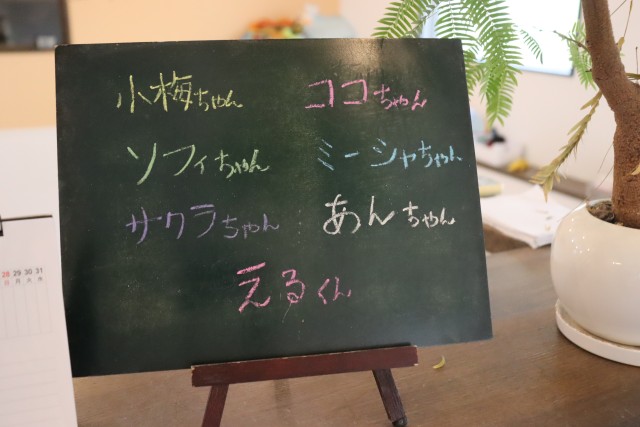 小梅ちゃん ココちゃん
ソフィちゃん ミーシャちゃん
サクラちゃん あんちゃん
えるくん
28 29 30 31